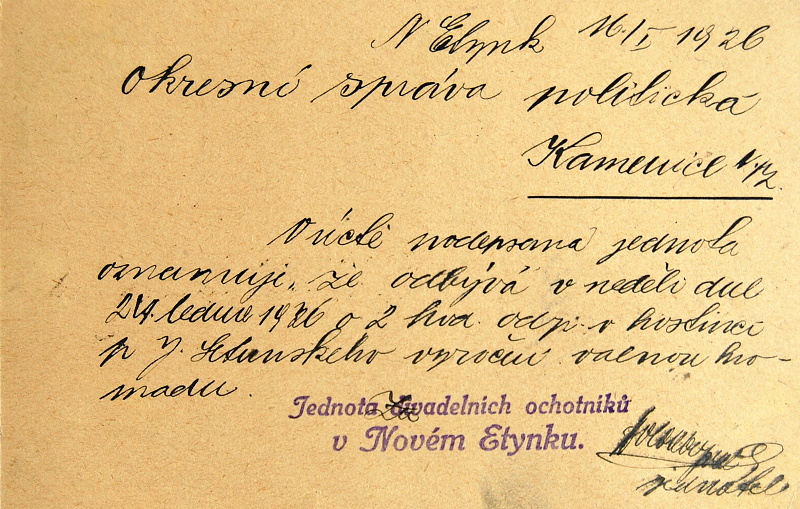 N Etynk 16./I 1926
Okresní správa politická
Kamenice n/L.
V úctě podepsaná jednota
oznamuje, že odbývá v neděli dne
24 ledna 1926 o 2 hod. odp. v hostinci
p J. Stunského výroční valnou hro-
madu.
Za
Jednota divadelních ochotníků
v Novém Etynku.
jednatel